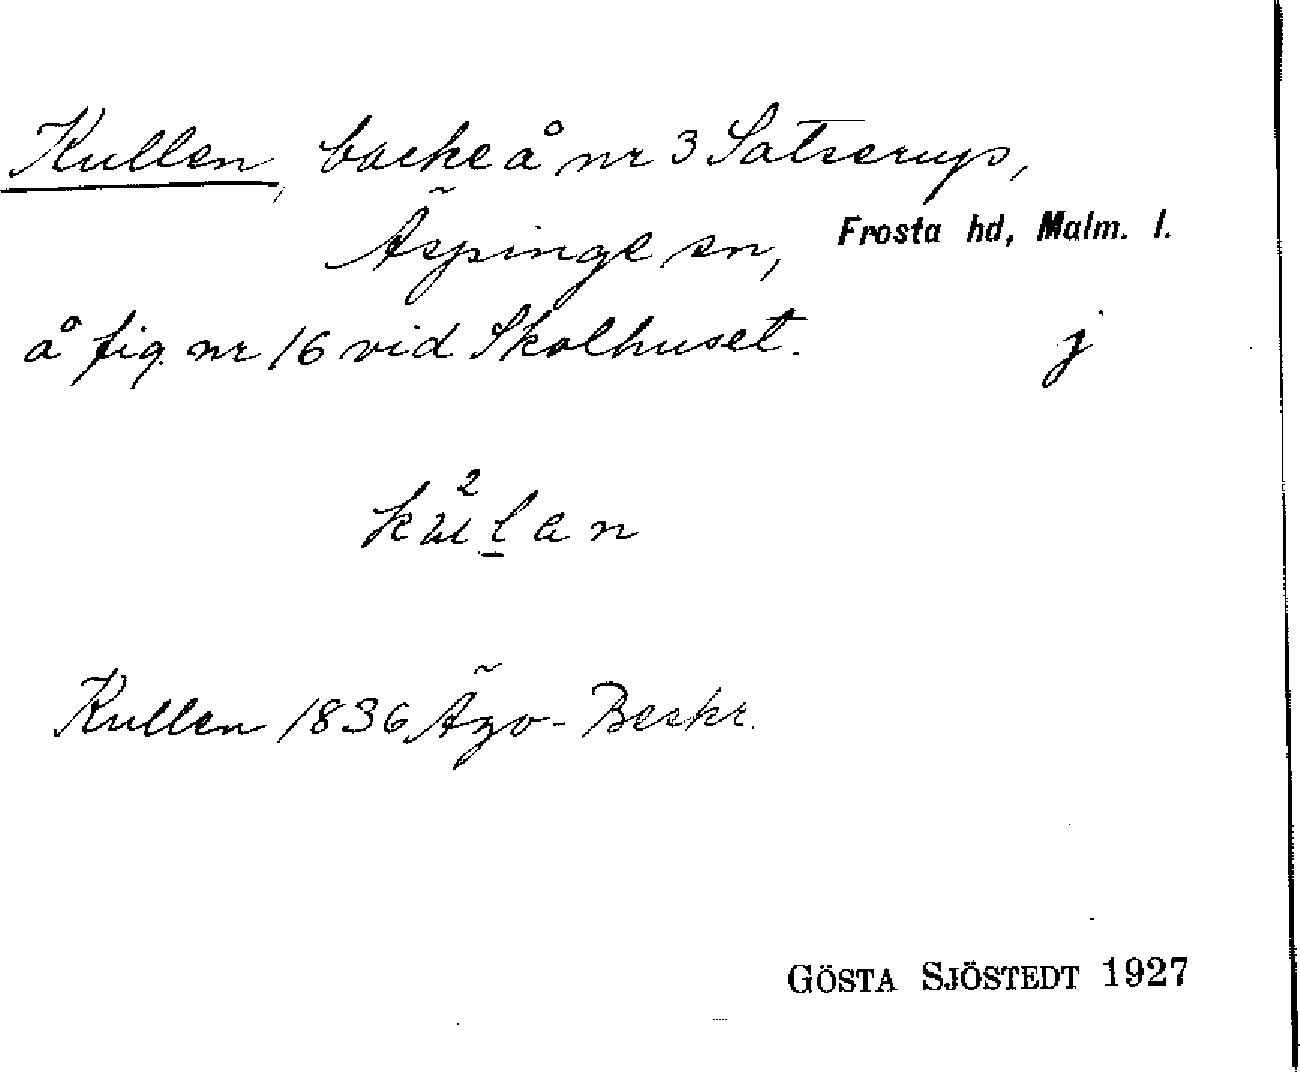 Kullen, backe å nr 3 Satserup,
Äspinge sn, Frosta hd, Malm. l.
å fig. nr 16 vid Skolhuset. j
Kullen 1836 Ägo-Beskr.
GÖSTA SJÖSTEDT 1927